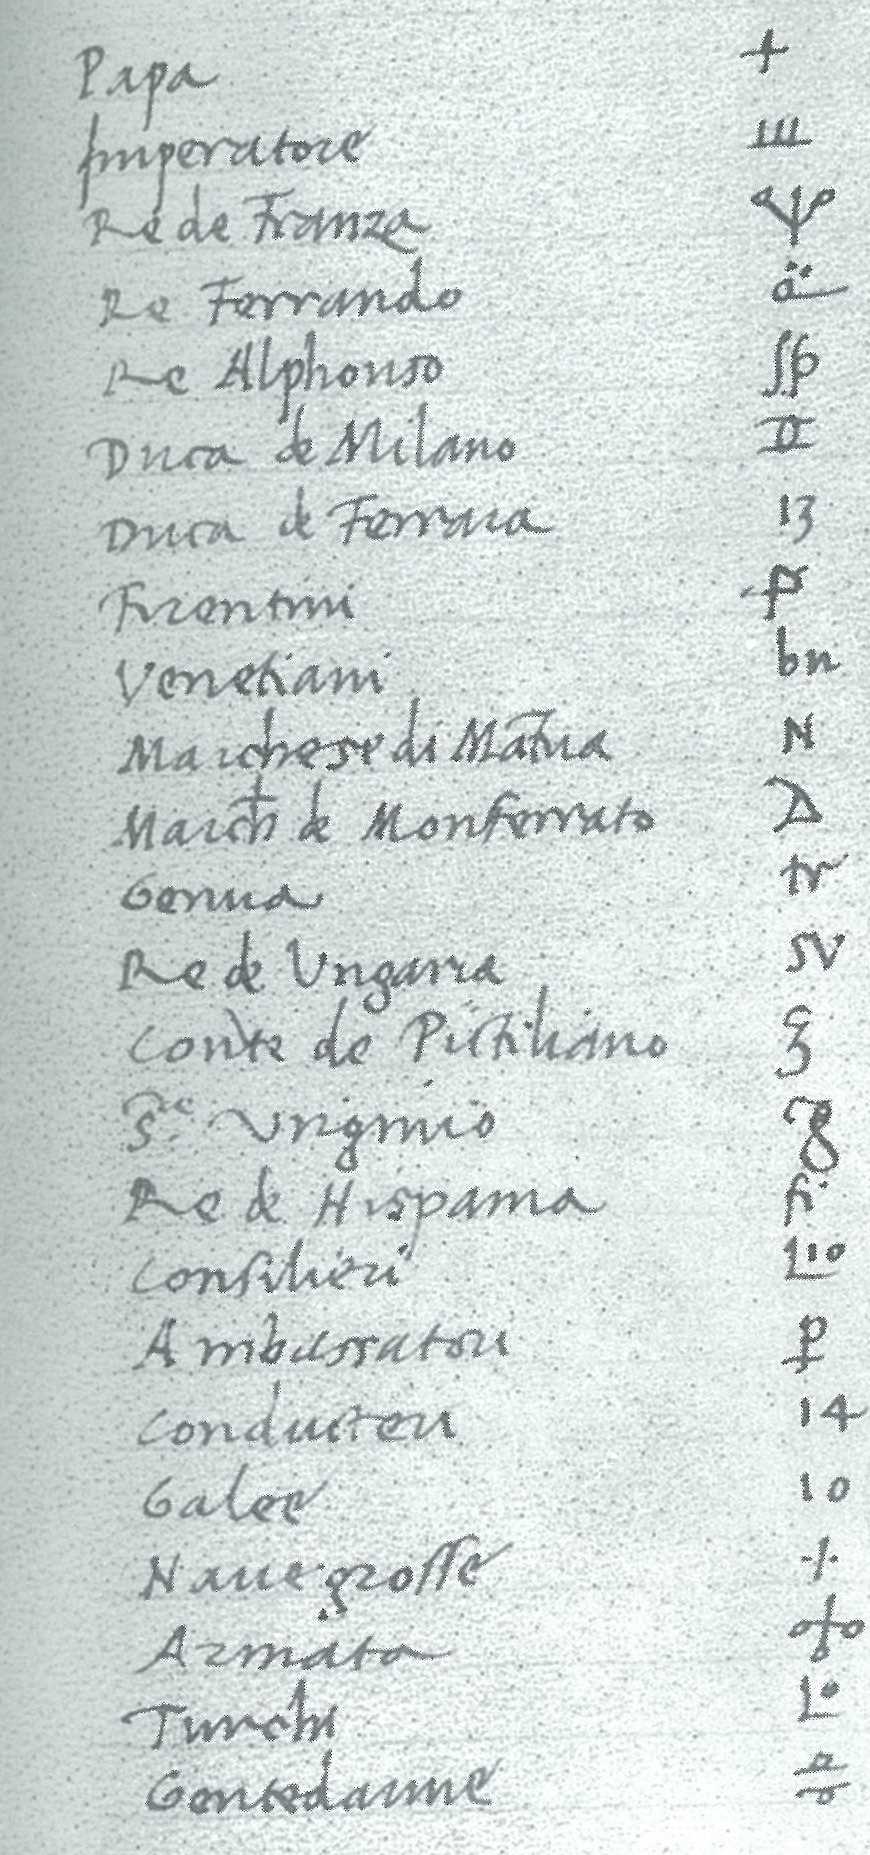 Papa +
Imperatore
Re de Franza
Re Ferrando
Re Alphonso
Duca de Milano
Duca de Ferrara 13
Firentini
Venetiani bn
Marchese di Mãtua N
March de Monferrato D
Genua tr
Re de Ungaria sv
Conte de Pittiliano
Virginio
Re de Hispania fi
Consilieri
Ambassatori p
Conducteri 14
Galee 10
Naue grosse ·/·
Armata
Turchi
Gentedarme